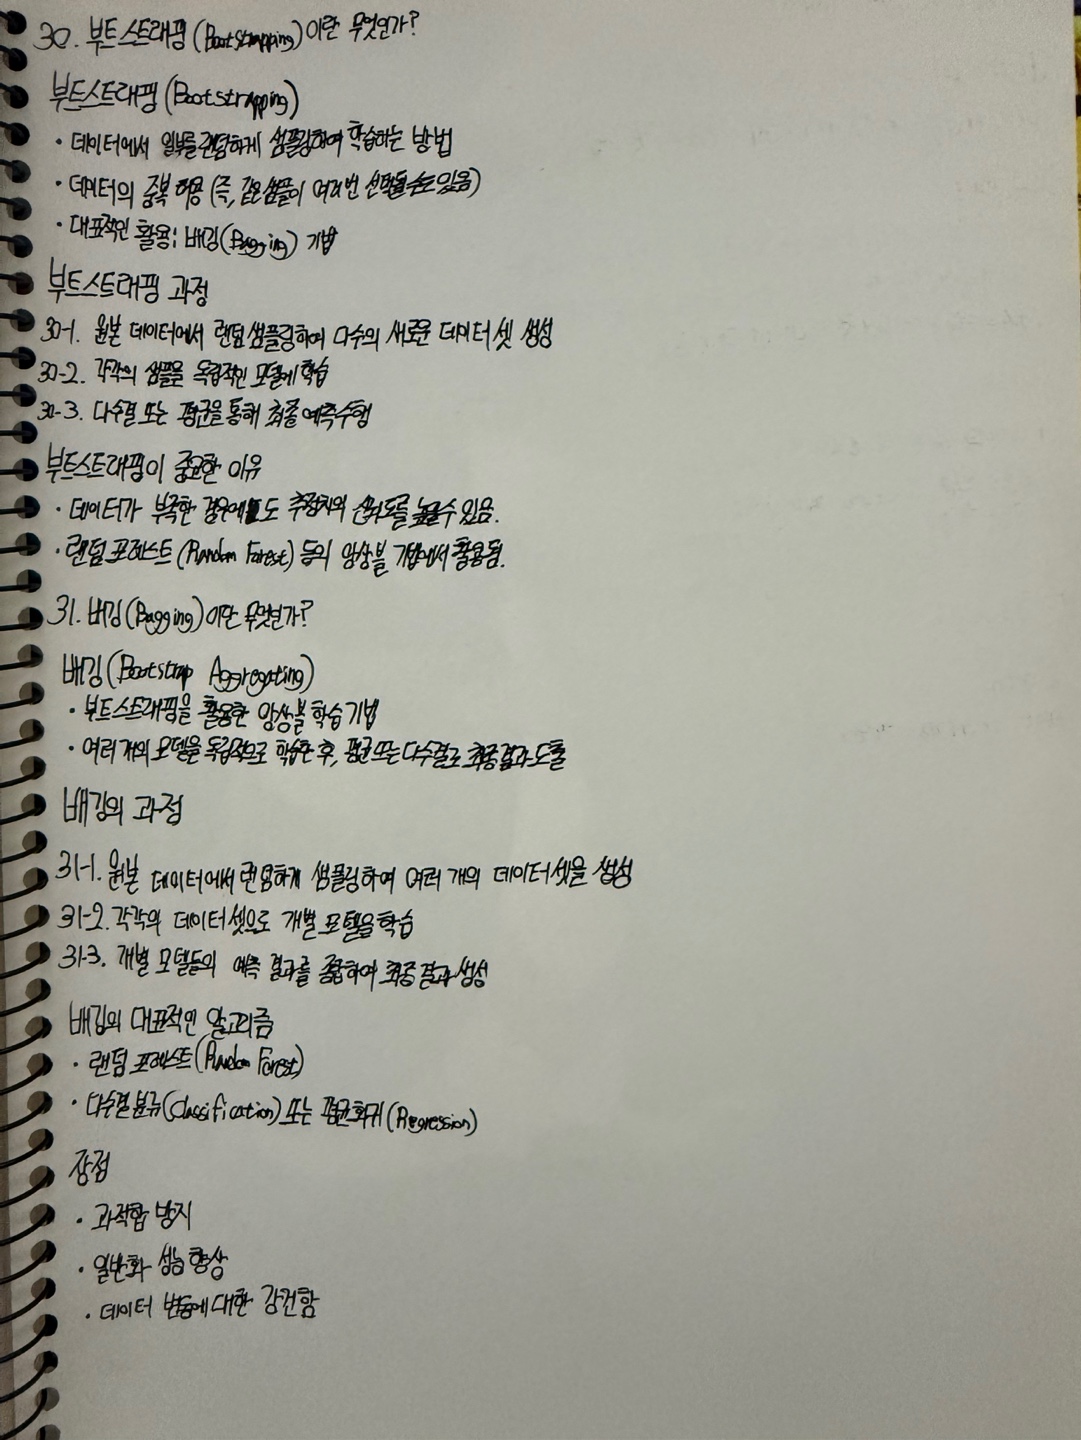 30. 부트스트래핑(Bootstrapping)이란 무엇인가?
부트스트래핑(Bootstrapping)
· 데이터에서 일부를 랜덤하게 샘플링하여 학습하는 방법
· 데이터의 중복 허용 (즉, 같은 샘플이 여러번 선택될 수도 있음)
· 대표적인 활용: 배깅(Bagging) 기법
부트스트래핑 과정
30-1. 원본 데이터에서 랜덤 샘플링하여 다수의 새로운 데이터 셋 생성
30-2. 각각의 샘플을 독립적인 모델에 학습
30-3. 다수결 또는 평균을 통해 최종 예측수행
부트스트래핑이 중요한 이유
· 데이터가 부족한 경우에도 추정치의 신뢰도를 높일 수 있음.
· 랜덤 포레스트(Random Forest) 등의 앙상블 기법에서 활용됨.
31. 배깅(Bagging)이란 무엇인가?
배깅(Bootstrap Aggregating)
· 부트스트래핑을 활용한 앙상블 학습 기법
· 여러 개의 모델을 독립적으로 학습한 후, 평균 또는 다수결로 최종결과 도출
배깅의 과정
31-1. 원본 데이터에서 랜덤하게 샘플링하여 여러 개의 데이터셋을 생성
31-2. 각각의 데이터셋으로 개별 모델을 학습
31-3. 개별 모델들의 예측 결과를 종합하여 최종 결과 생성
배깅의 대표적인 알고리즘
· 랜덤 포레스트(Random Forest)
· 다수결 분류(Classification) 또는 평균회귀(Regression)
장점
· 과적합 방지
· 일반화 성능 향상
· 데이터 변동에 대한 강건함